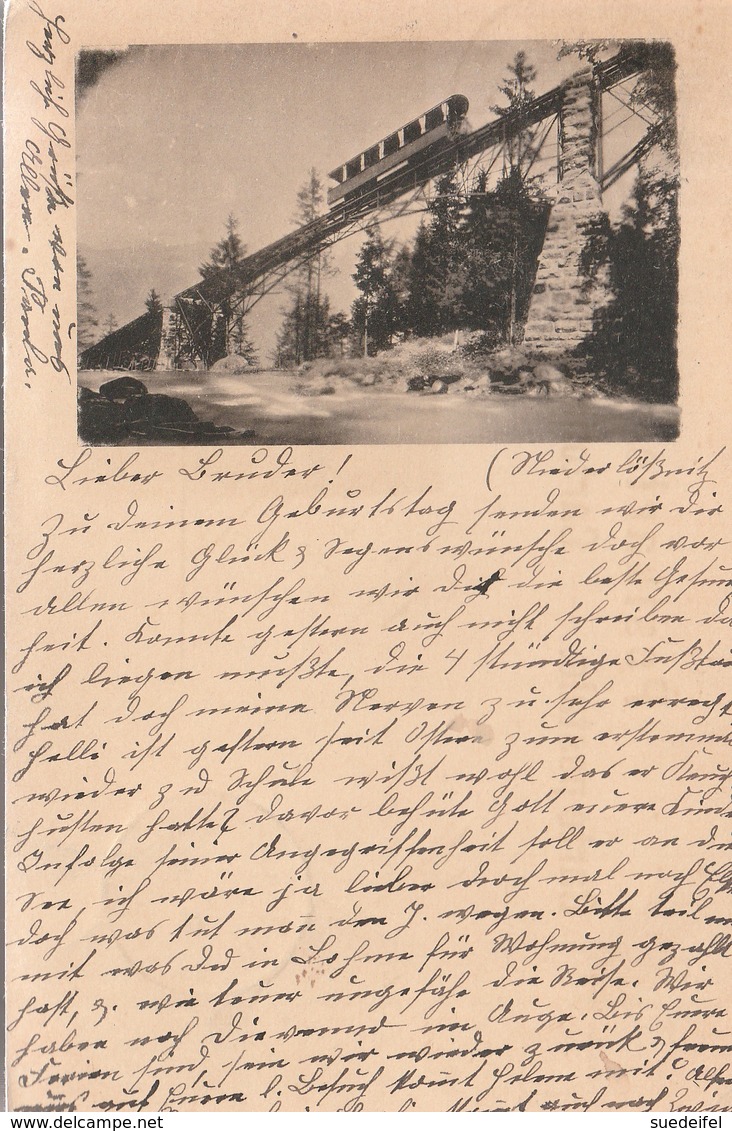 Herzlich Grüße von uns
Allen.
Lieber Bruder! (Niederlößnitz
Zu deinem Geburtstag senden wir dir
herzliche Glück & Segenswünsche doch vor
allen wünschen wir dir die beste Gesun
heit. Konnte gestern auch nicht schreiben da
ich liegen mußte, die 4 stündige Fußtou
hat doch meine Nerven zu sehr erregt
Helli ist gestern seit Ostern zum erstenma
wieder zu Schule wißt wohl das er Keuch
husten hatte? davor behüte Gott eure Kinde
Infolge seiner Angegriffenheit soll er an die
See, ich wäre ja lieber doch mal nach
doch was tut man den J. wegen. Bitte teil m
mit was Du in Lohme für Wohnung gezahlt
hast, &. wie teuer ungefähr die Reise. Wir
haben noch im Auge. Bis Eure
Ferien sind, sein wir wieder zurück &
auf Eure l. Besuch kommt Helene mit?
kommt auch nach
© www.delcampe.net
suedeifel